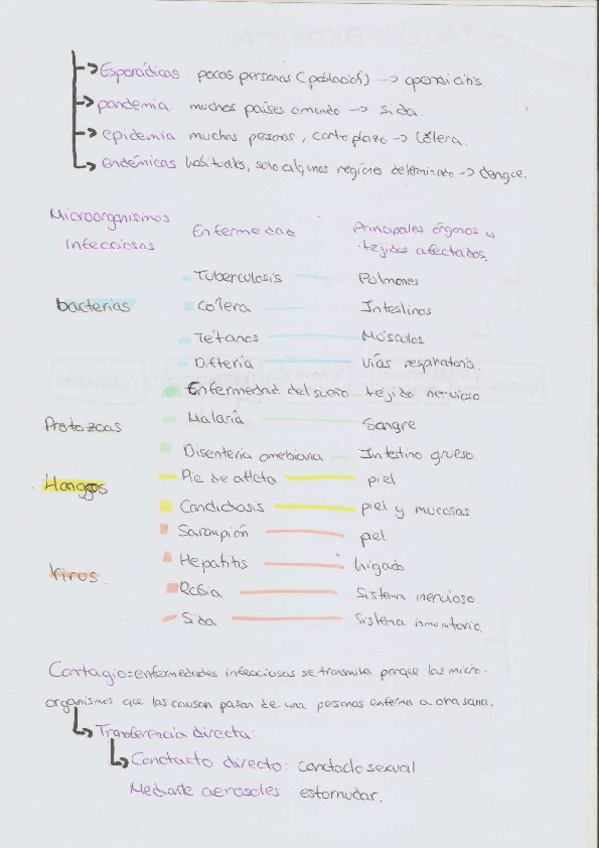 Esporádicas pocas personas (población) --> apendicitis.
pandemia muchos paises o mundo -> sida.
epidemia muchas personas, corto plazo -> Cólera.
endémicas habituales, solo algunas regiones determinado -> dengue.
Microorganismos Enfermedad Principales órganos y
Infecciosas tejidos afectados.
Tuberculosis Pulmones
bacterias Colera Intestinos
Tétanos Músculos
Difteria Vías respiratoria.
Enfermedad del sueño tejido nervioso
Protozoas Malaria Sangre
Disenteria amebiana Intestino grueso
Hongos Pie de atleta piel
Candidiasis piel y mucosas
Sarampión piel.
Virus. Hepatitis higado
Rabia Sistema nervioso.
Sida Sistema inmunitario.
Contagio: enfermedades infecciosas se transmite porque las micro-
organismos que las causan pasan de una personas enferma a otra sana.
Transferencia directa:
Conctacto directo: conctacto sexual
Mediante aerosoles: estornudar.